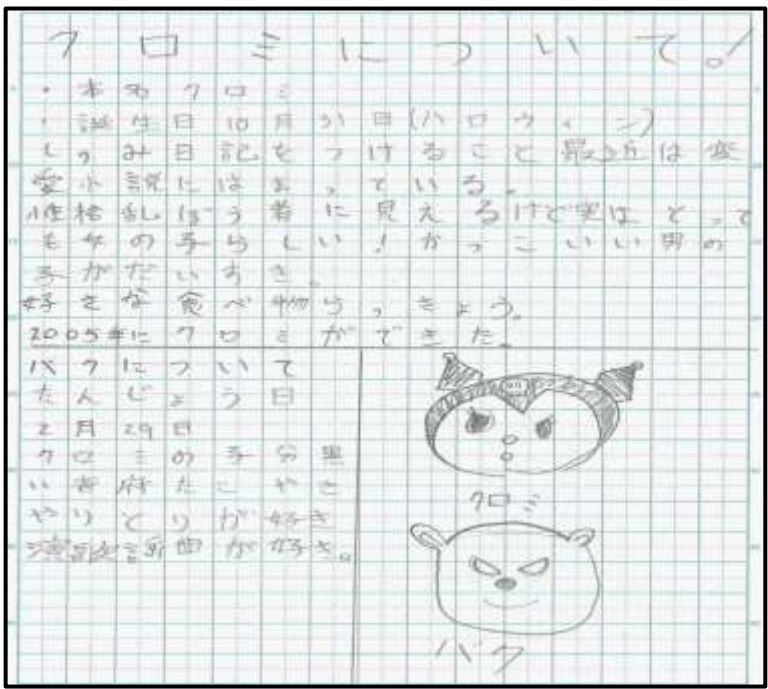 クロミについて!
・本名クロミ
・誕生日10月31日(ハロウィーン)
しゅみ日記をつけること最近は恋
愛小説にはまっている。
性格乱ぼう者に見えるけど実はとって
も女の子らしい!かっこいい男の
子がだいすき。
好きな食べ物らっきょう。
2005年にクロミができた。
バクについて
たんじょう日
2月29日
クロミの子分黒
いき たこやき
やりとりが好き
演歌 が好き。
クロミ
バク